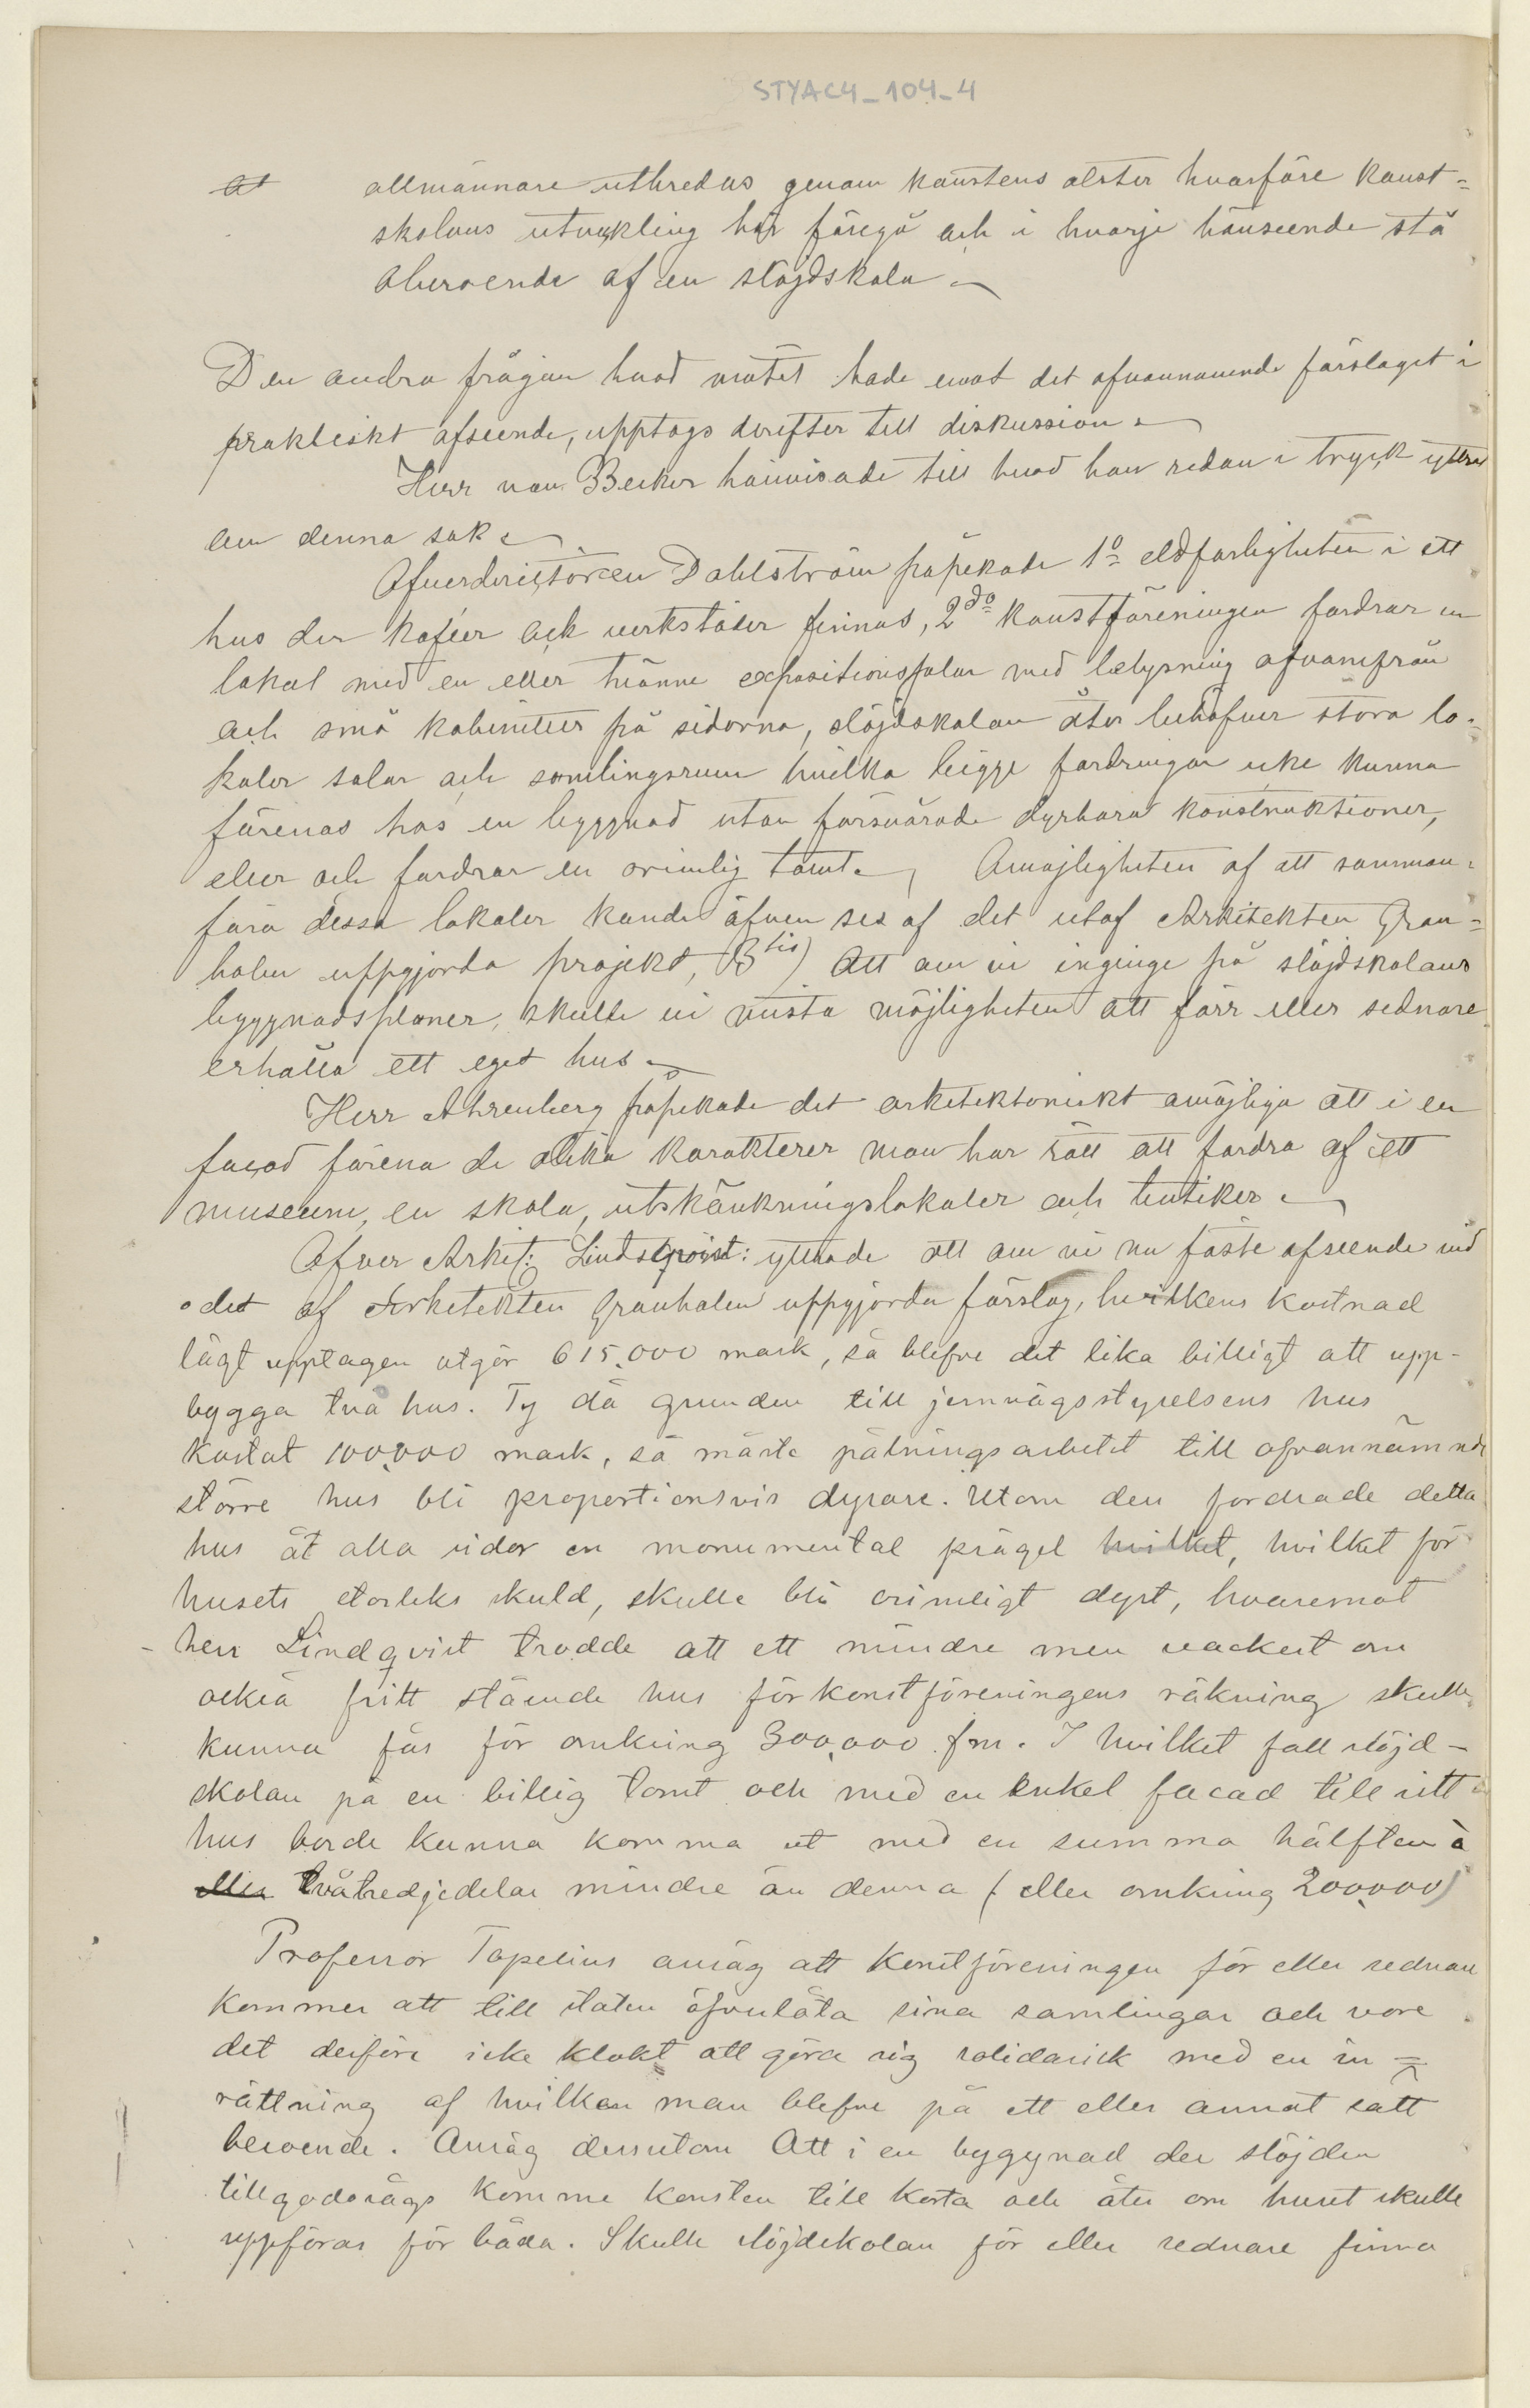 STYAC4_104-4
at allmännare uthredas genom konstens alster hvarföre konst-
skolans utveckling bör föregå och i hvarje hänseende stå
oberoende af en slöjdskola.
Den andra frågan hvad mötet hade emot det ofvannämnde förslaget i
praktiskt afseende, upptogs derefter till diskussion.
Herr von Becker hänvisade till hvad han redan i tryck yttrat
om denna sak.
Öfverdirektören Dahlström påpekade 1o eldfarligheten i ett
hus der kaféer och verkstäder finnas, 2do konstföreningen fordrar en
lokal med en eller tvänne expositionssalar med belysning ofvanifrån
och små kabinetter på sidorna, slöjdskolan åter behöfver stora lo-
kaler salar och samlingsrum hvilka begge fordringar icke kunna
förenas hos en byggnad utan försvårade dyrbara konstruktioner,
eller och fordrar en orimlig tomt. Omöjligheten af att samman-
föra dessa lokaler kunde äfven ses af det utaf Arkitekten Gran-
holm uppgjorda projekt, B bis) Att om vi inginge på slöjdskolans
byggnadsplaner, skulle vi mista möjligheten att förr eller sednare
erhålla ett eget hus.
Herr Ahrenberg påpekade det arkitektoniskt omöjliga att i en
façad förena de olika karakterer man har rätt att fordra af ett
museum, en skola, utskänkningslokaler och butiker.
Öfver Arkit: Lindsqvist: yttrade att om vi nu fäste afseende vid
det af Arkitekten Granholm uppgjorda förslag, hvilkens kostnad
lågt upptagen utgör 615,000 mark, så blefve det lika billigt att upp-
bygga två hus. Ty då grunden till jernvägsstyrelsens hus
kostat 100,000 mark, så måste pålningsarbetet till ofvannämnde
större hus bli proportionsvis dyrare. Utom den fordrade detta
hus åt alla sidor en monumental prägel hvilket, hvilket för
husets storleks skuld, skulle bli orimligt dyrt, hvaremot
herr Lindqvist trodde att ett mindre men vackert om
också fritt stående hus för konstföreningens räkning skulle
kunna fås för omkring 300,000 fm. I hvilket fall slöjd-
skolan på en billig tomt och med en enkel facad till sitt
hus borde kunna komma ut med en summa hälften à
eller tvåtredjedelar mindre än denna (eller omkring 200,000)
Professor Topelius ansåg att konstföreningen för eller sednare
kommer att till staten öfverlåta sina samlingar och vore
det derföre icke klokt att göra sig solidarisk med en in-
rättning af hvilken man blefve på ett eller annat sätt
beroende. Ansåg dessutom Att i en byggnad der slöjden
tillgodosågs komme konsten till korta och åter om huset skulle
uppföras för båda. Skulle slöjdskolan för eller sednare finna